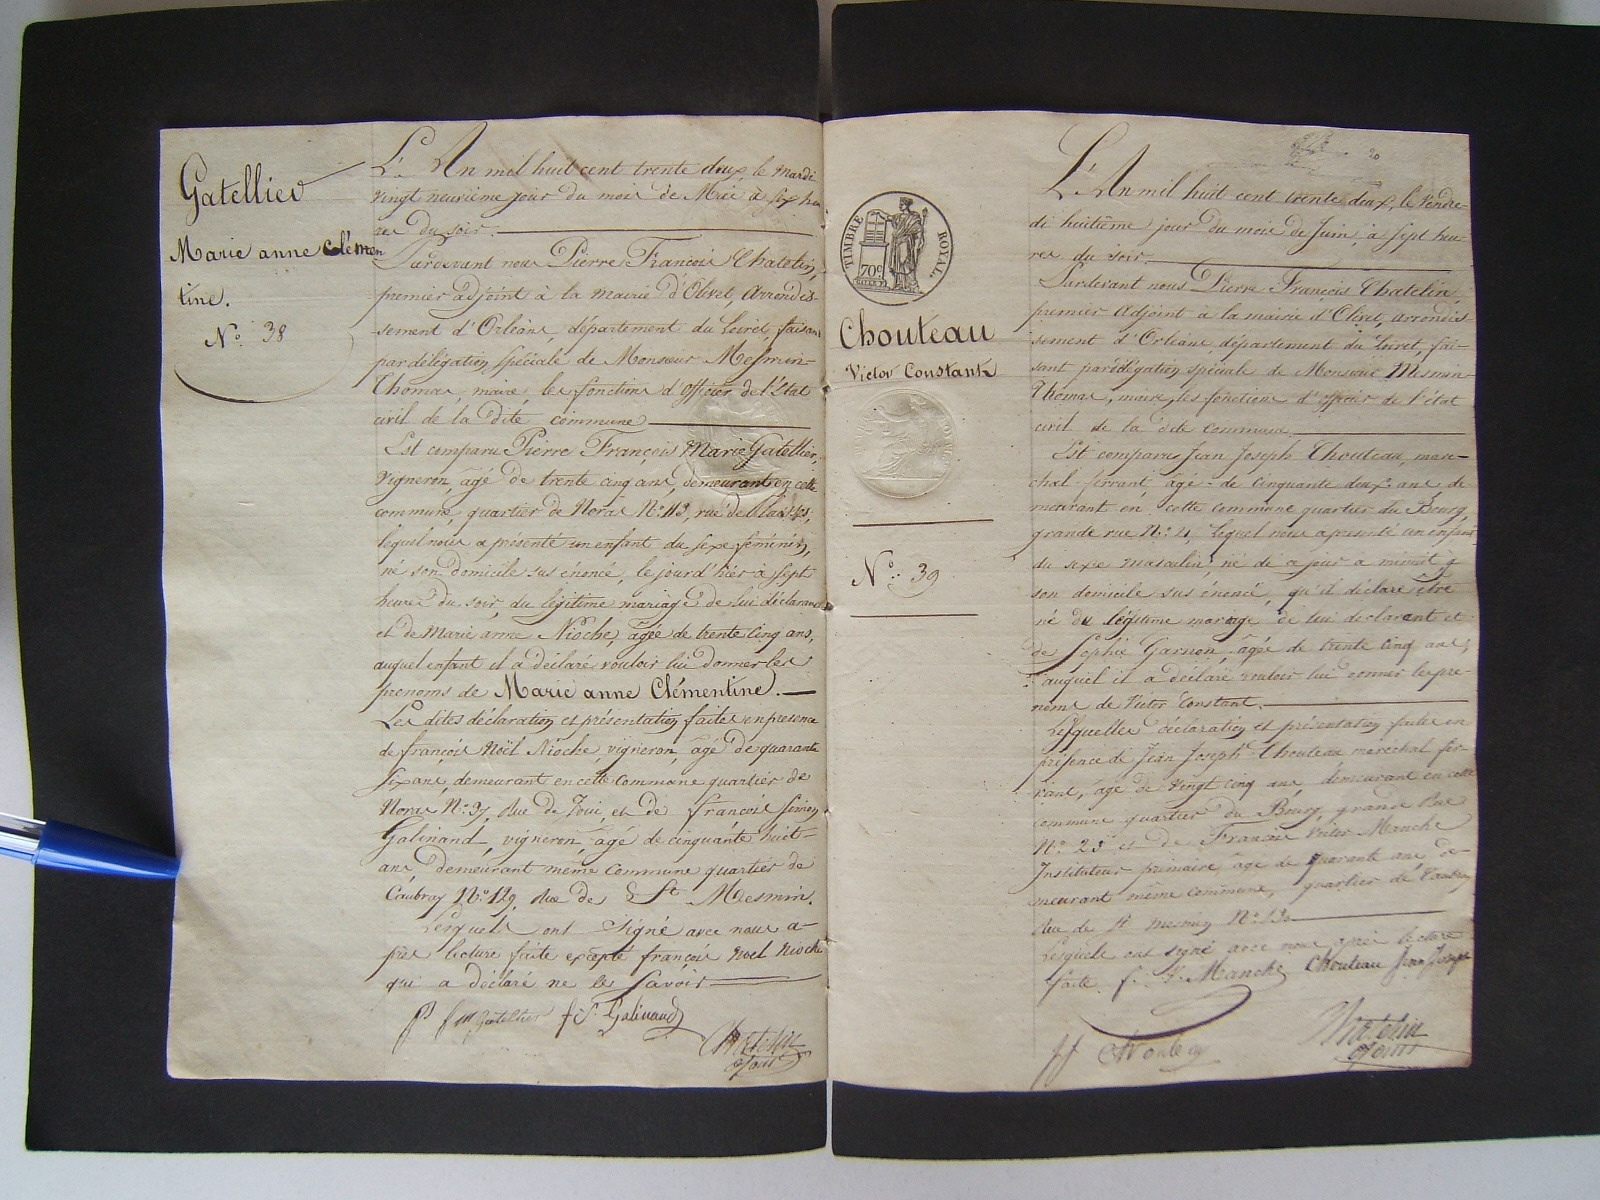 Gatellier
Marie anne Clémen
tine.
N.° 38
L'An mil huit cent trente deux, le Mardi
vingt neuvième jour du mois de Mai à six heu
res du soir.
Pardevant nous Pierre François Chatelin,
premier adjoint à la mairie d'Olivet, Arrondis-
sement d'Orléans, département du Loiret, faisant
par délégation spéciale de Monsieur Mesmin-
Thomas, maire, les fonctions d'officier de l'État
civil de la dite commune
Est comparu Pierre François Marie Gatellier,
vigneron, âgé de trente cinq ans, demeurant en cette
commune, quartier de Noras N.° 113, rue de
lequel nous a présenté un enfant du sexe féminin,
né son domicile sus énoncé, le jour d'hier à sept
heures du soir, du légitime mariage de lui déclarant
et de Marie anne Nioche, âgée de trente cinq ans,
auquel enfant il a déclaré vouloir lui donner les
prenoms de Marie anne Clémentine.
Les dites déclaration et présentation faites en presence
de françois Noël Nioche, vigneron, âgé de quarante
six ans, demeurant en cette Commune quartier de
Noras N.° 37, Rue de et de françois Simon
Galinand, vigneron, âgé de cinquante huit
ans, demeurant même Commune quartier de
Caubray N.° 129, Rue de St Mesmin.
Lesquels ont Signé avec nous a-
près lecture faite excepté françois Noel Nioche
qui a déclaré ne le Savoir
p f m gatellier f. S. Galinand
Chatelin
adjoint
TIMBRE ROYAL.
70c.
Chouteau
Victor Constant
N.° 39
L'An mil huit cent trente deux, le Vendre-
di huitième jour du mois de Juin, à sept heu-
res du soir.
Pardevant nous Pierre François Chatelin,
premier Adjoint à la mairie d'Olivet, arrondis
sement d'Orléans, département du Loiret, fai-
sant par délégation spéciale de Monsieur Mesmin
Thomas, maire, les fonctions d'officier de l'état
civil de la dite Commune
Est comparu Jean Joseph Chouteau, maré-
chal ferrant, âgé de cinquante deux ans de
meurant en cette commune quartier du Bourg,
grande rue N.° 4, lequel nous a présenté un enfant
du sexe masculin né de ce jour a minuit
son domicile sus énoncé, qu'il déclare être
né du légitime mariage de lui déclarant et
de Sophie Garnon, âgée de trente cinq ans,
auquel il a déclaré vouloir lui donner les pré-
noms de Victor Constant.
Lesquelles déclaration et présentation faites en
présence de Jean Joseph Chouteau maréchal fer-
rant, âgé de vingt cinq ans, demeurant en cette
commune quartier du Bourg, grande Rue
N.° 23 et de François Victor Manché
Instituteur primaire âgé de quarante ans de-
meurant même commune, quartier de Caubray
Rue de St mesmin N.° 130
Lesquels ont signé avec nous après lecture
faite. f. V. Manché Chouteau Jean Joseph
Chouteau
Chatelin
adjoint